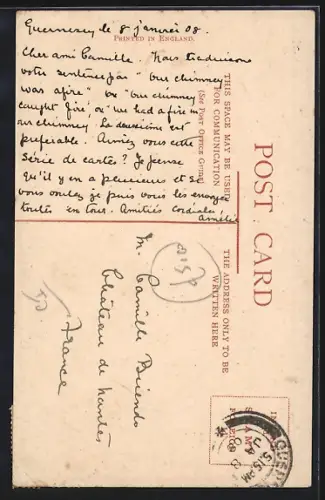 Guernesey le 8 janvier 08.
PRINTED IN ENGLAND.
Cher ami Camille. Nous traduisons
votre sentence par "Our chimney
was afire" ou "our chimney
caught fire, ou "we had a fire in
our chimney. La deuxième est
préférable. Aimez vous cette
série de cartes? Je pense
qu'il y en a plusieurs et si
vous voulez je puis vous les envoyer
toutes en tour. Amitiés cordiales
Amélie
THIS SPACE MAY BE USED
FOR COMMUNICATION
(See Post Office Guide)
POST CARD
THE ADDRESS ONLY TO BE
WRITTEN HERE
M. Camille
Château de Nantes
France
GUERN
5.15 AM
JA
08